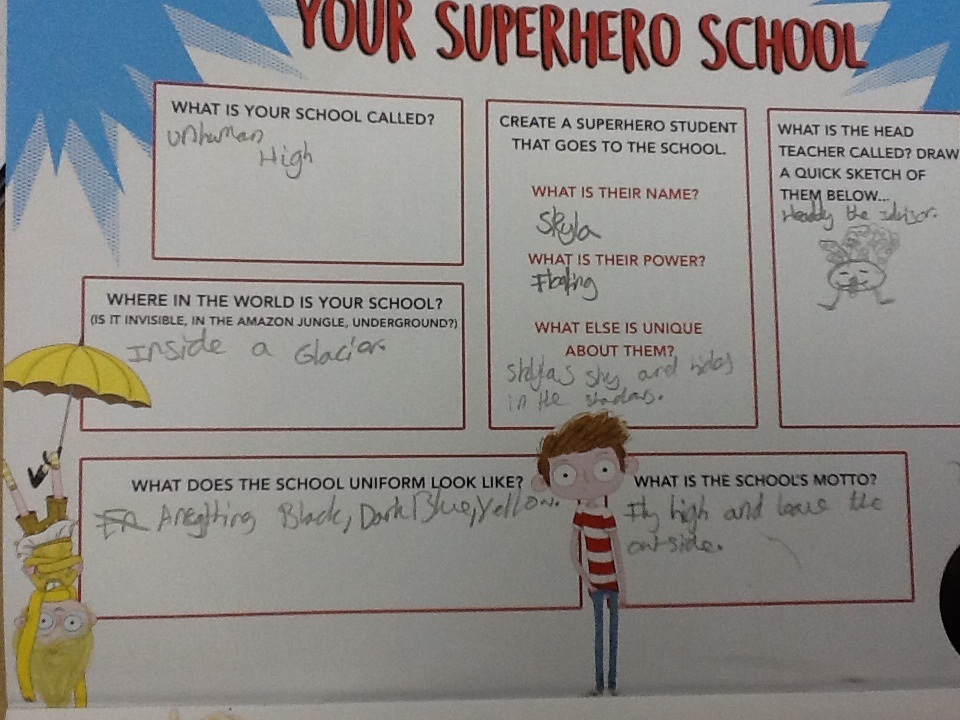 YOUR SUPERHERO SCHOOL
WHAT IS YOUR SCHOOL CALLED?
Unhuman
High
WHERE IN THE WORLD IS YOUR SCHOOL?
(IS IT INVISIBLE, IN THE AMAZON JUNGLE, UNDERGROUND?)
Inside a Glacier
CREATE A SUPERHERO STUDENT
THAT GOES TO THE SCHOOL.
WHAT IS THEIR NAME?
Skyla
WHAT IS THEIR POWER?
WHAT ELSE IS UNIQUE
ABOUT THEM?
Skylas shy and hides
in the shadows.
WHAT IS THE HEAD
TEACHER CALLED? DRAW
A QUICK SKETCH OF
THEM BELOW...
the
WHAT DOES THE SCHOOL UNIFORM LOOK LIKE?
Black, Dark Blue, Yellow.
WHAT IS THE SCHOOL'S MOTTO?
Fly high and leave the
outside.